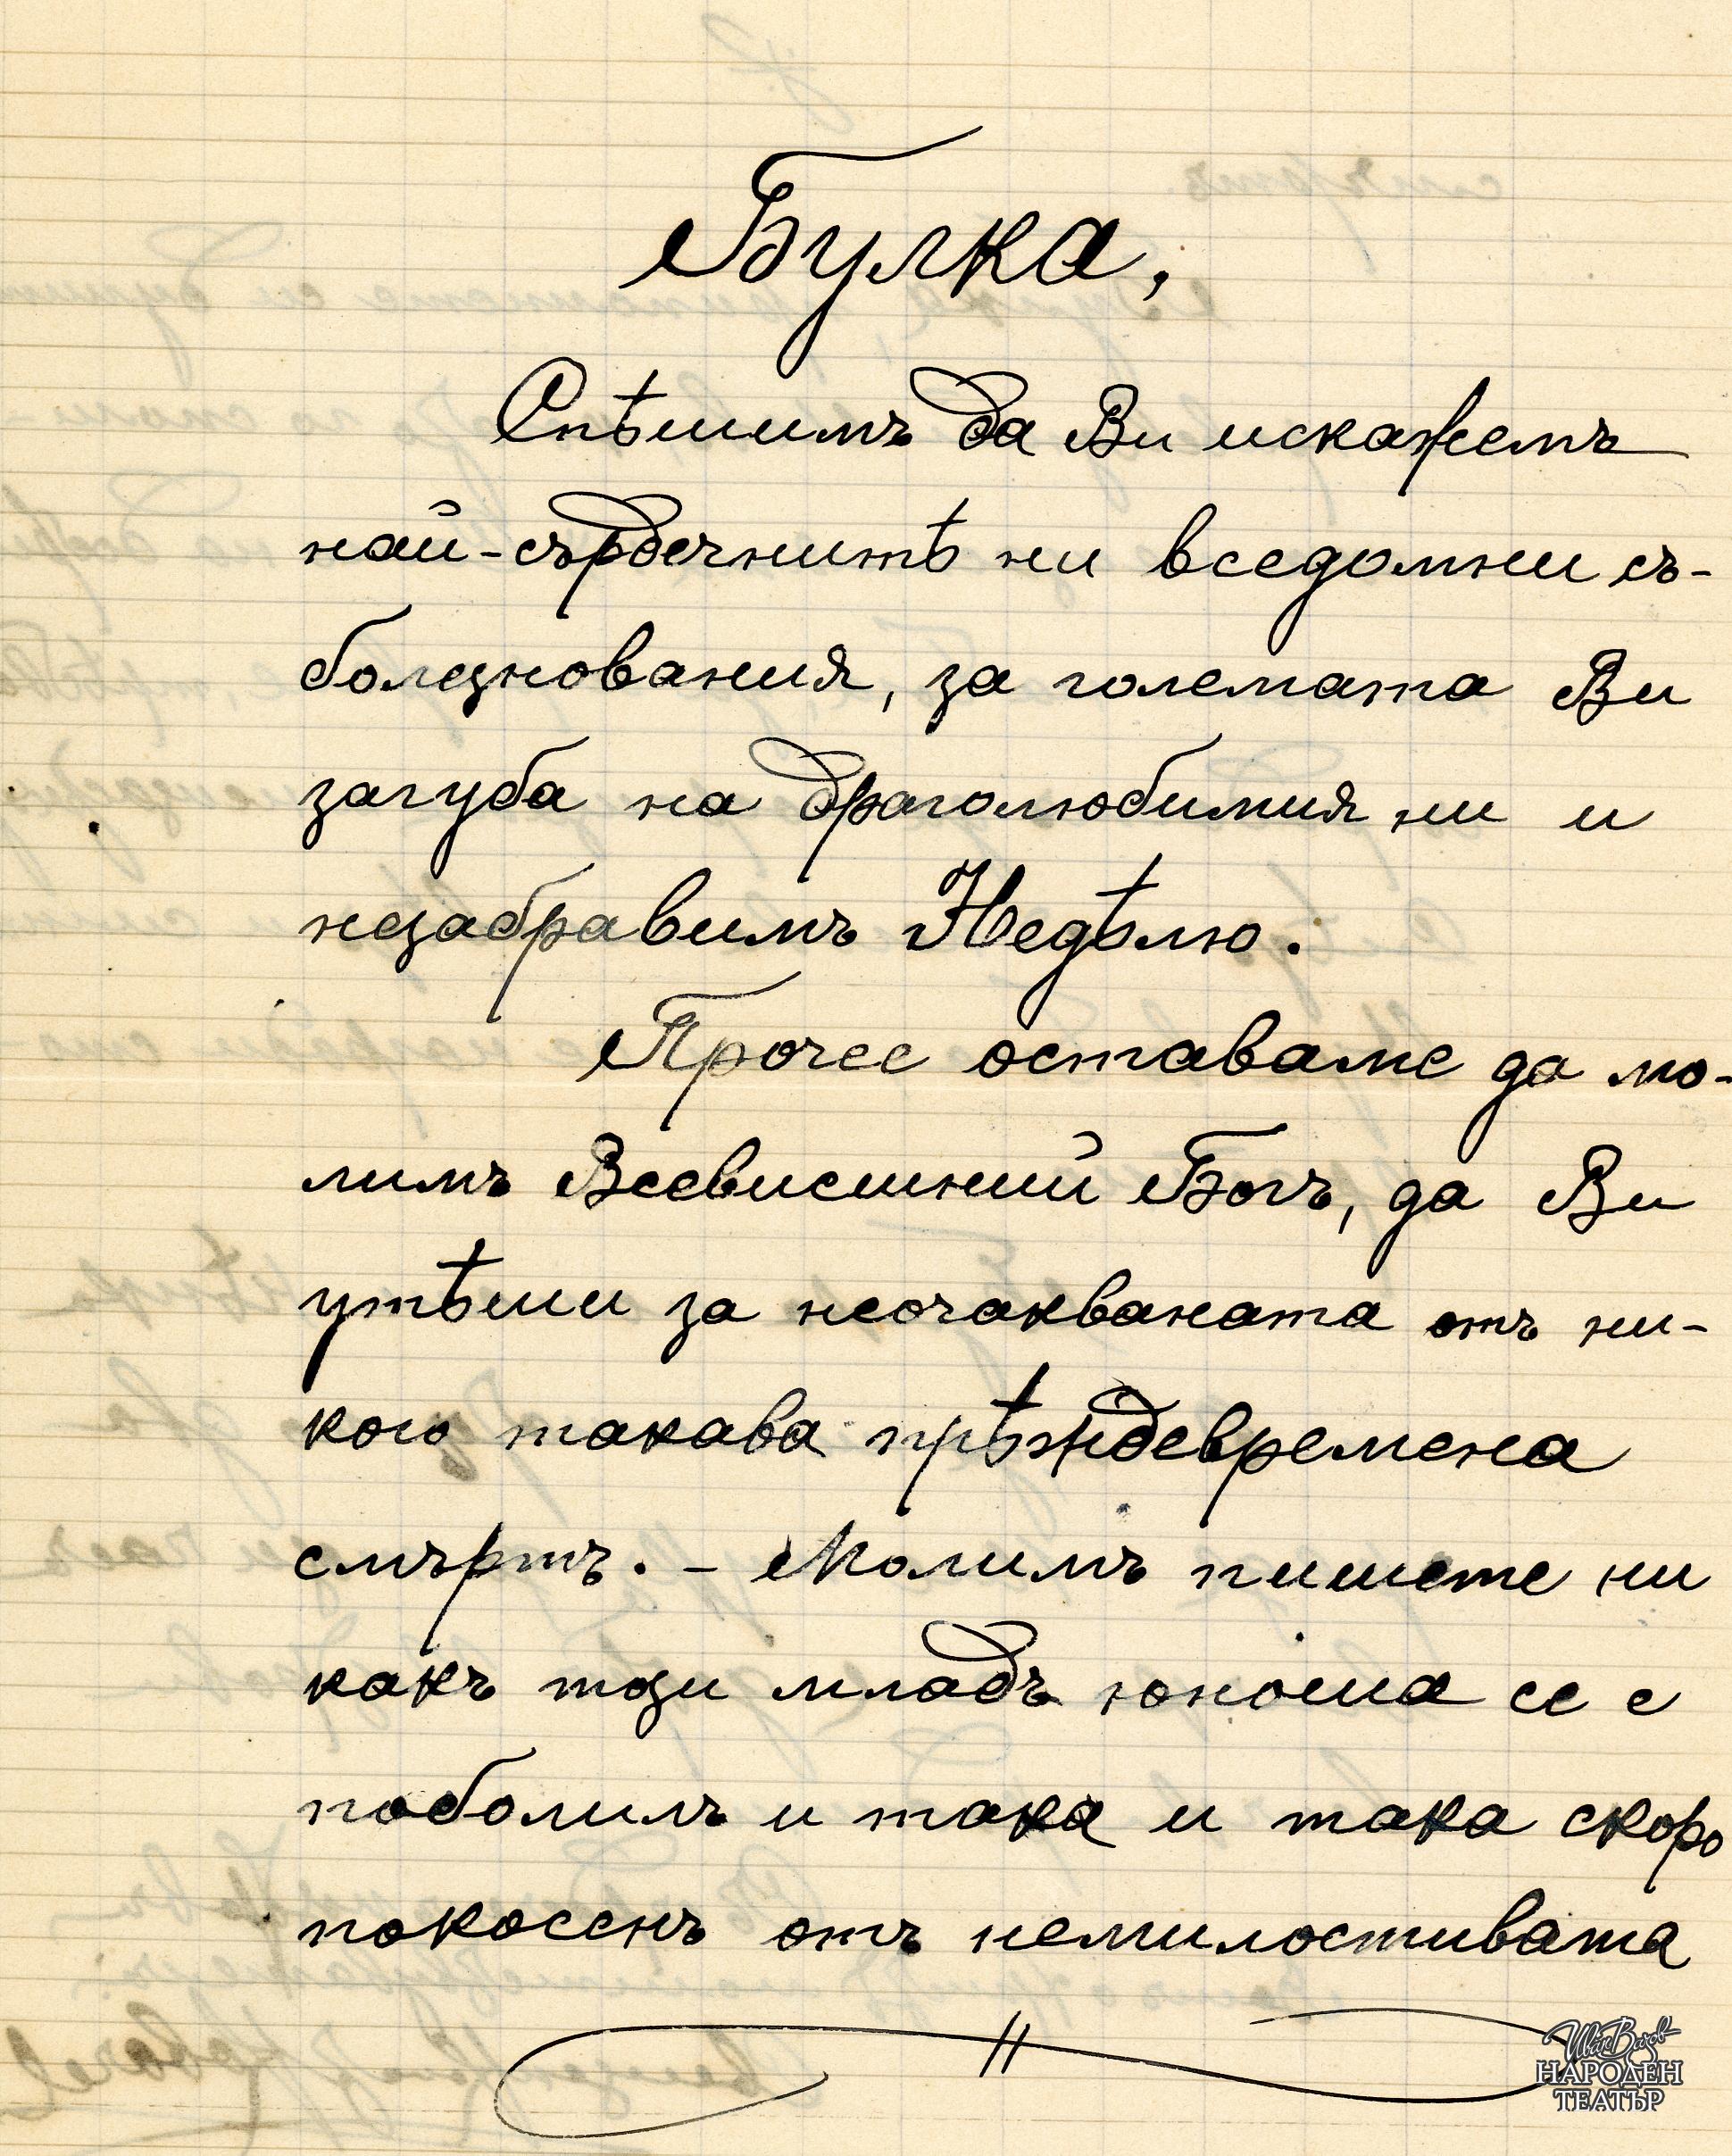 Булка,
Спѣшимъ да Ви искажемъ
най-сърдечнитѣ ни вседомни съ-
болезнования, за големата Ви
загуба на драголюбимия ни и
незабравимъ Недѣлю.
Прочее оставаме да мо-
лимъ Всевисшний Богъ, да Ви
утѣши за неочакваната отъ ни-
кого такава прѣждевремена
смърть. – Молимъ пишете ни
какъ този младъ юноша се е
поболилъ и така и така скоро
покосенъ отъ немилостивата
Иван Вазов
НАРОДЕН
ТЕАТЪР